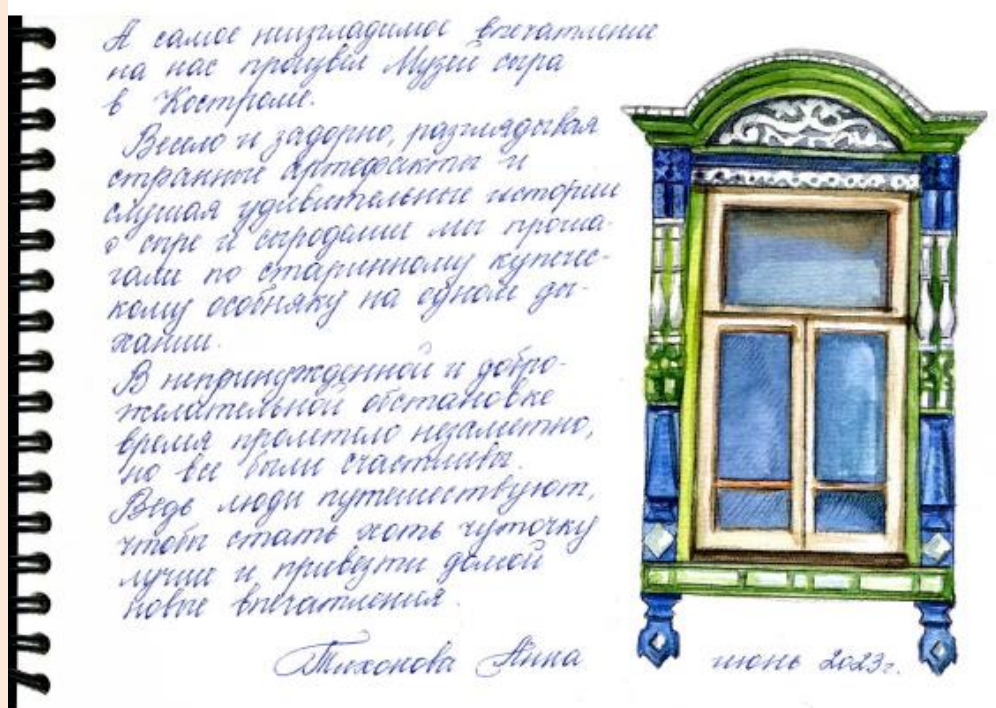 А самое неизгладимое впечатление
на нас произвёл Музей сыра
в Костроме.
Весело и задорно, разглядывая
странные артефакты и
слушая удивительные истории
о сыре и сыроделии мы прошa-
гали по старинному купечес-
кому особняку на одном ды-
хании.
В непринуждённой и добро-
желательной обстановке
время пролетело незаметно,
но все были счастливы.
Ведь люди путешествуют,
чтобы стать хоть чуточку
лучше и привезти домой
новые впечатления.
Тихонова Анна
июнь 2023г.